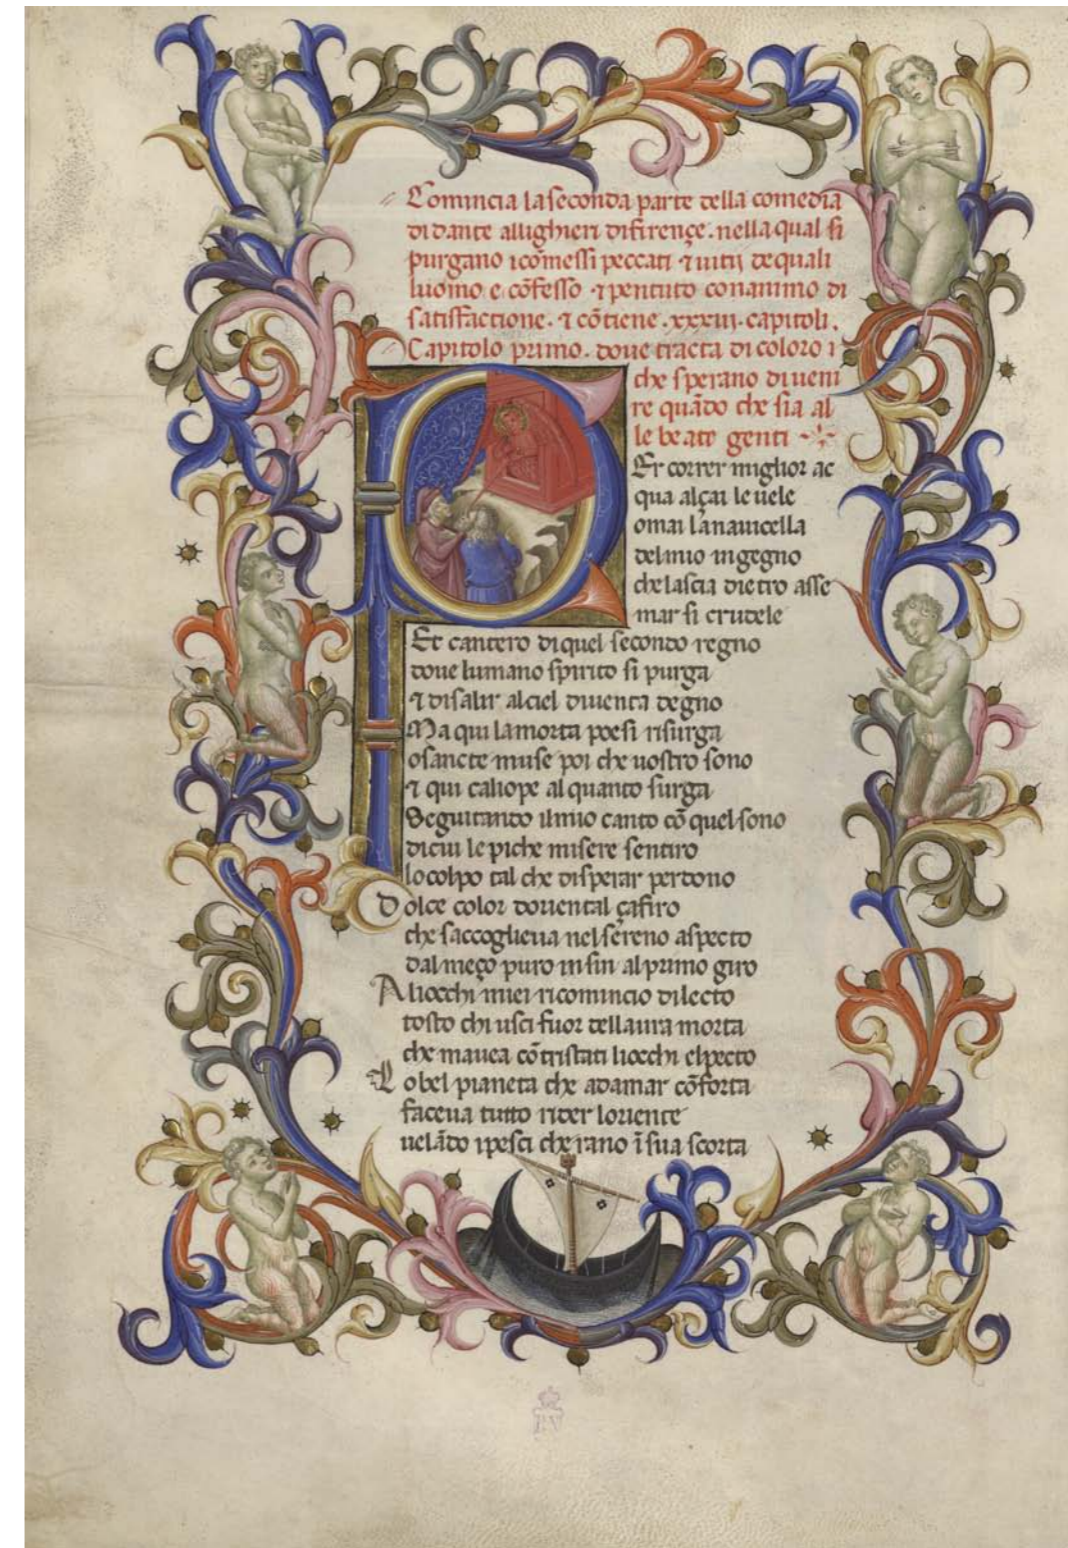 Comincia la seconda parte della comedia
di dante allighieri di firençe. nella qual si
purgano i cõmessi peccati ⁊ uitij de quali
luomo e cõfesso ⁊ pentuto con animo di
satisfactione. ⁊ cõtiene .xxxiij. capitoli.
Capitolo primo. doue tracta di coloro i
che sperano di ueni
re quãdo che sia al
le beate genti
PEr correr miglior ac
qua alçai le uele
omai la nauicella
del mio ingegno
che lascia dietro asse
mar si crudele
Et cantero di quel secondo regno
doue lumano spirito si purga
⁊ di salir al ciel diuenta degno
Ma qui la morta poesi risurga
o sancte muse poi che uostro sono
⁊ qui caliope al quanto surga
Seguitando il mio canto cõ quel sono
di cui le piche misere sentiro
lo colpo tal che disperar perdono
Dolce color doriental çafiro
che saccoglieua nel sereno aspecto
dal meço puro insin al primo giro
Aliocchi miei ricomincio dilecto
tosto chi usci fuor dellaura morta
che mauea cõtristati liocchi elpecto
Lo bel pianeta che adamar cõforta
faceua tutto rider loriente
uelãdo i pesci cherano ĩ sua scorta